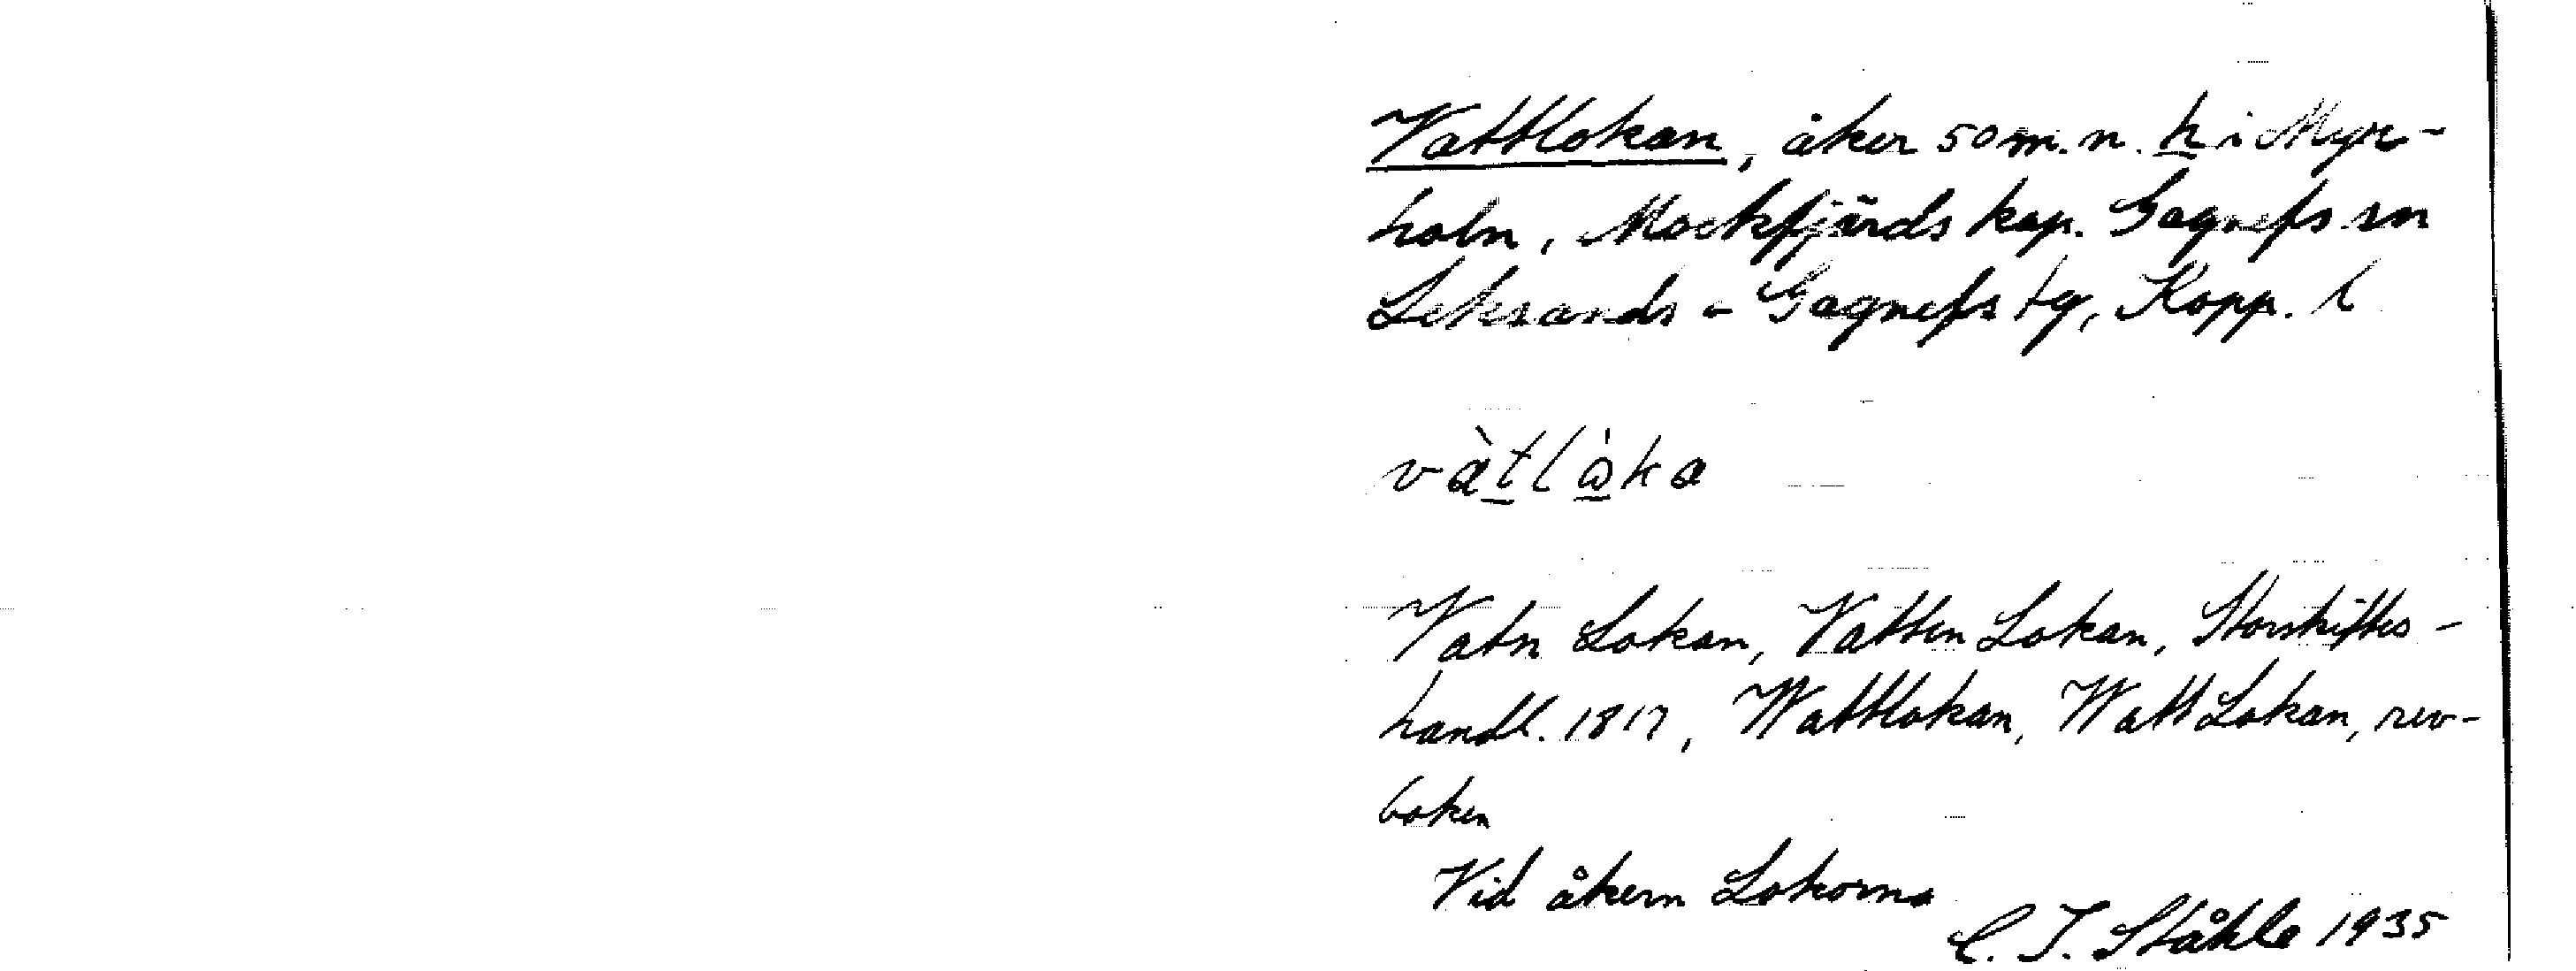 Vattlokan, åker 50 m. n. h i Myr-
holn, Mockfjärds kap. Gagnefs sn
Leksands - Gagnefs tg, Kopp. l
vàtlòka
Vatn Lokan, Vatten Lokan, Storskiftes-
handl. 1817, Wattlokan, Watt Lokan, rev-
boken
Vid åkern Lokorna
C. I. Ståhle 1935